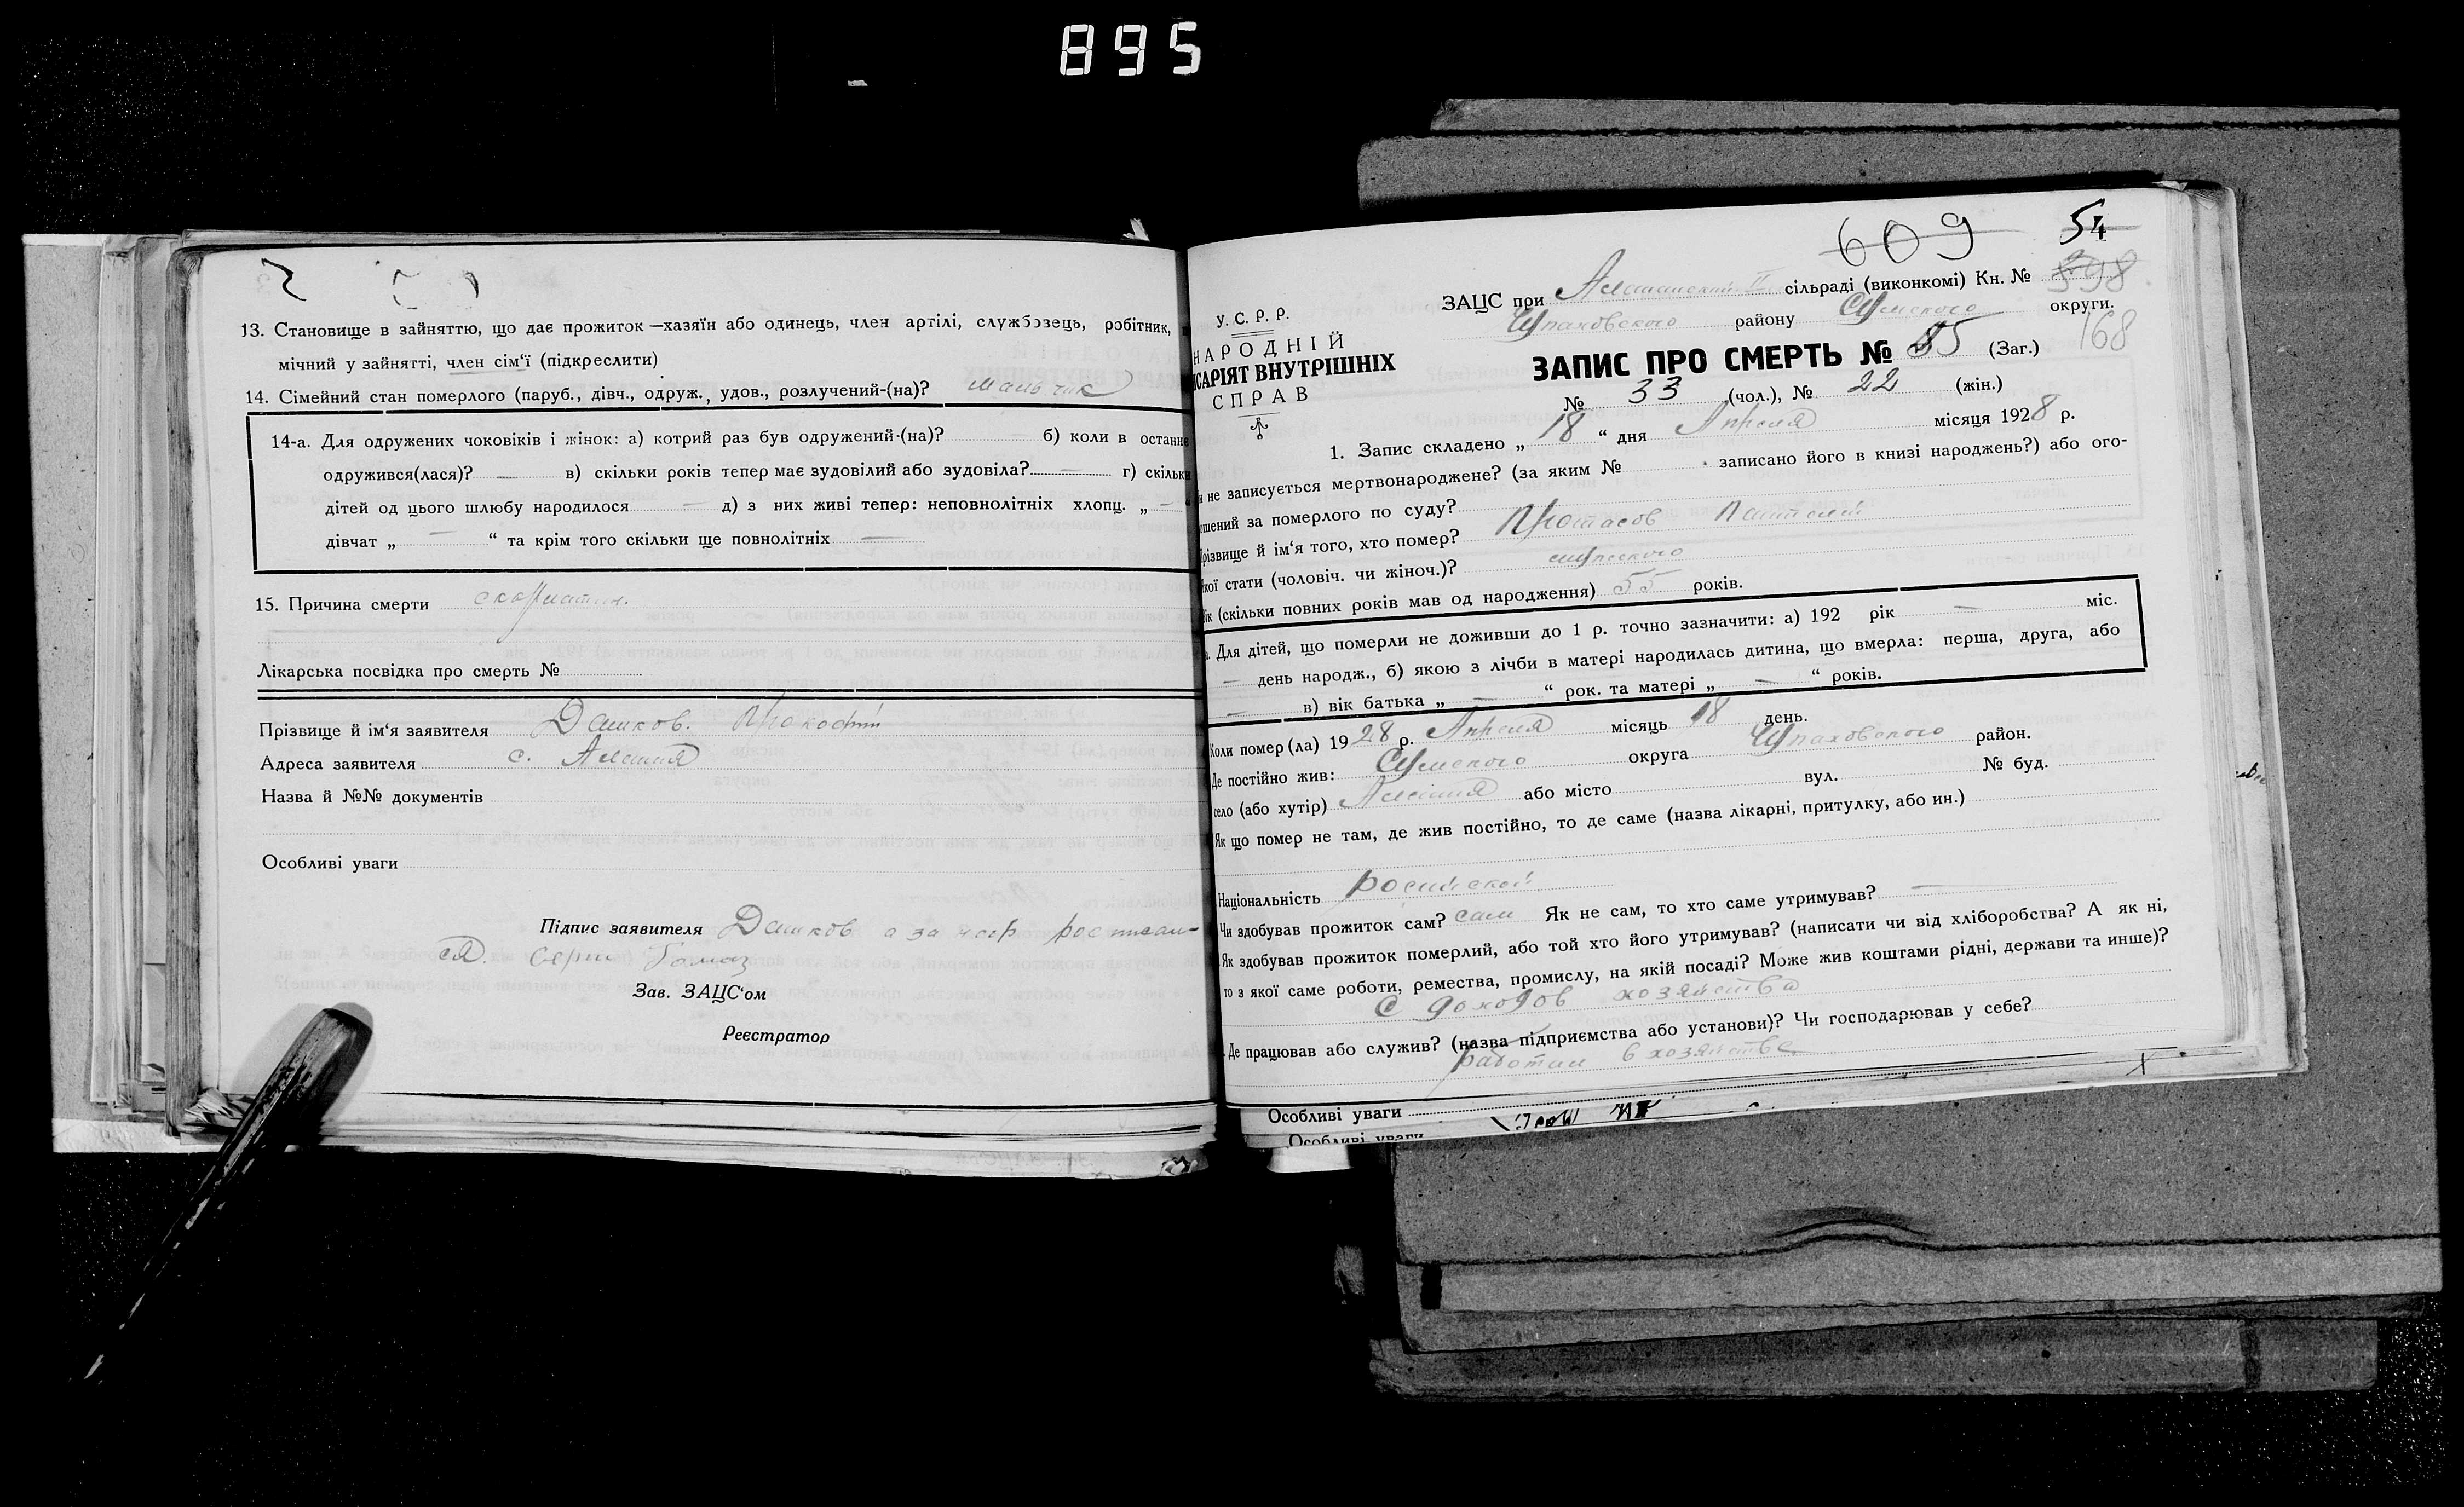 895
13. Становище в зайняттю, що дає прожиток—хазяїн або одинець, член артілі, службовець, робітник,
мічний у зайнятті, член сім‘ї (підкреслити)
14. Сімейний стан померлого (паруб., дівч., одруж., удов., розлучений-(на)? мальчик
14-а. Для одружених чоковіків і жінок: а) котрий раз був одружений-(на)? б) коли в останнє
одружився(лася)? — в) скільки років тепер має зудовілий або зудовіла? — г) скільки
дітей од цього шлюбу народилося — д) з них живі тепер: неповнолітніх хлопц. „ —
дівчат „ — “ та крім того скільки ще повнолітніх —
15. Причина смерти скарлатин.
Лікарська посвідка про смерть №
Прізвище й ім‘я заявителя Дашков. Прокофий
Адреса заявителя с.
Назва й №№ документів
Особливі уваги
Підпис заявителя Дашков а за негр росписал-
ся.
Зав. ЗАЦС‘ом
Реєстратор
609 54
ЗАЦС при сільраді (виконкомі) Кн. № 398
району Сумского округи.
168
У. С. Р. Р.
НАРОДНІЙ
ІСАРІЯТ ВНУТРІШНІХ
СПРАВ
ЗАПИС ПРО СМЕРТЬ № 55 (Заг.)
№ 33 (чол.), № 22 (жін.)
1. Запис складено „ 18 “ дня Апреля місяця 1928 р.
не записується мертвонароджене? (за яким № записано його в книзі народжень?) або ого-
ошений за померлого по суду?
різвище й ім‘я того, хто помер? Протасов Пантелей
кої стати (чоловіч. чи жіноч.)? мужского
ік (скільки повних років мав од народження) 55 років.
Для дітей, що померли не доживши до 1 р. точно зазначити: а) 192 рік — міс.
— день народж., б) якою з лічби в матері народилась дитина, що вмерла: перша, друга, або
— в) вік батька „ — “ рок. та матері „ — “ років.
Коли помер (ла) 1928 р. Апреля місяць 18 день.
Де постійно жив: Сумского округа район.
село (або хутір) або місто вул. № буд.
Як що помер не там, де жив постійно, то де саме (назва лікарні, притулку, або ин.)
Національність росийской
Чи здобував прожиток сам? сам Як не сам, то хто саме утримував? —
Як здобував прожиток померлий, або той хто його утримував? (написати чи від хліборобства? А як ні,
то з якої саме роботи, ремества, промислу, на якій посаді? Може жив коштами рідні, держави та инше)?
С доходов хозяйства
Де працював або служив? (назва підприємства або установи)? Чи господарював у себе?
работал в хозяйстве
Особливі уваги
Особливі уваги